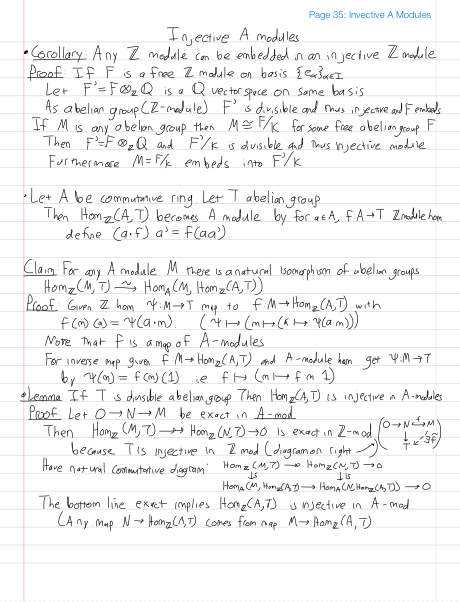 Page 35: Invective A Modules
Injective A modules
• Corollary: Any ℤ module can be embedded in an injective ℤ module
Proof: If F is a free ℤ module on basis {eα}α∈I
Let F' = F⊗_ℤ ℚ is a ℚ vector space on same basis
As abelian group (ℤ-module) F' is divisible and thus injective and F embeds
If M is any abelian group then M ≅ F/K for some free abelian group F
Then F' = F⊗_ℤ ℚ and F'/K is divisible and thus injective module
Furthermore M = F/K embeds into F'/K
• Let A be commutative ring. Let T abelian group
Then Hom_ℤ(A,T) becomes A module by for a∈A, f:A→T ℤ module hom
define (a·f) a' = f(aa')
Claim: For any A module M there is a natural isomorphism of abelian groups
Hom_ℤ(M,T) ⥲ Hom_A(M, Hom_ℤ(A,T))
Proof: Given ℤ hom ψ:M→T map to f:M→Hom_ℤ(A,T) with
f(m)(a) = ψ(a·m) (ψ ↦ (m ↦ (a ↦ ψ(a·m)))
Note that f is a map of A-modules
For inverse map given f:M→Hom_ℤ(A,T) and A-module hom get ψ:M→T
by ψ(m) = f(m)(1) ie f ↦ (m ↦ f m 1)
• Lemma: If T is divisible abelian group Then Hom_ℤ(A,T) is injective in A-modules
Proof: Let 0→N→M be exact in A-mod
Then Hom_ℤ(M,T) ↠ Hom_ℤ(N,T)→0 is exact in ℤ-mod (0→N→M
because T is injective in ℤ mod (diagram on right ↗) ↓ T ↙∃f̃)
Have natural commutative diagram: Hom_ℤ(M,T) → Hom_ℤ(N,T) → 0
↓≅ ↓≅
Hom_A(M, Hom_ℤ(A,T)) → Hom_A(N, Hom_ℤ(A,T)) → 0
The bottom line exact implies Hom_ℤ(A,T) is injective in A-mod.
(Any map N→Hom_ℤ(A,T) comes from map M→Hom_ℤ(A,T)